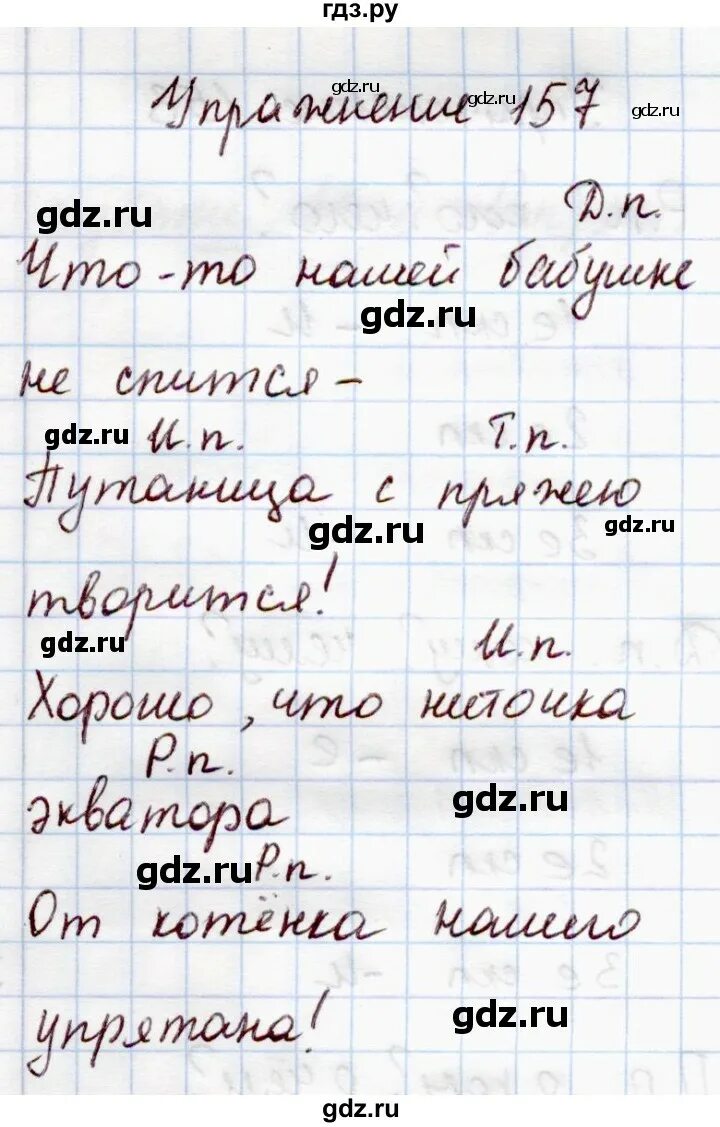 гдз.ру
Упражнение 157
gdz.ru
gdz.ru
gdz.ru
Д.п.
Что-то нашей бабушке
gdz.ru
не спится –
gdz.ru И.п. Т.п.
Путаница с пряжею
gdz.ru
gdz.ru
творится!
gdz.ru
И.п.
Хорошо, что ниточка
Р.п.
gdz.ru
экватора
gdz.ru Р.п.
От котёнка нашего
gdz.ru
упрятана!
gdz.ru